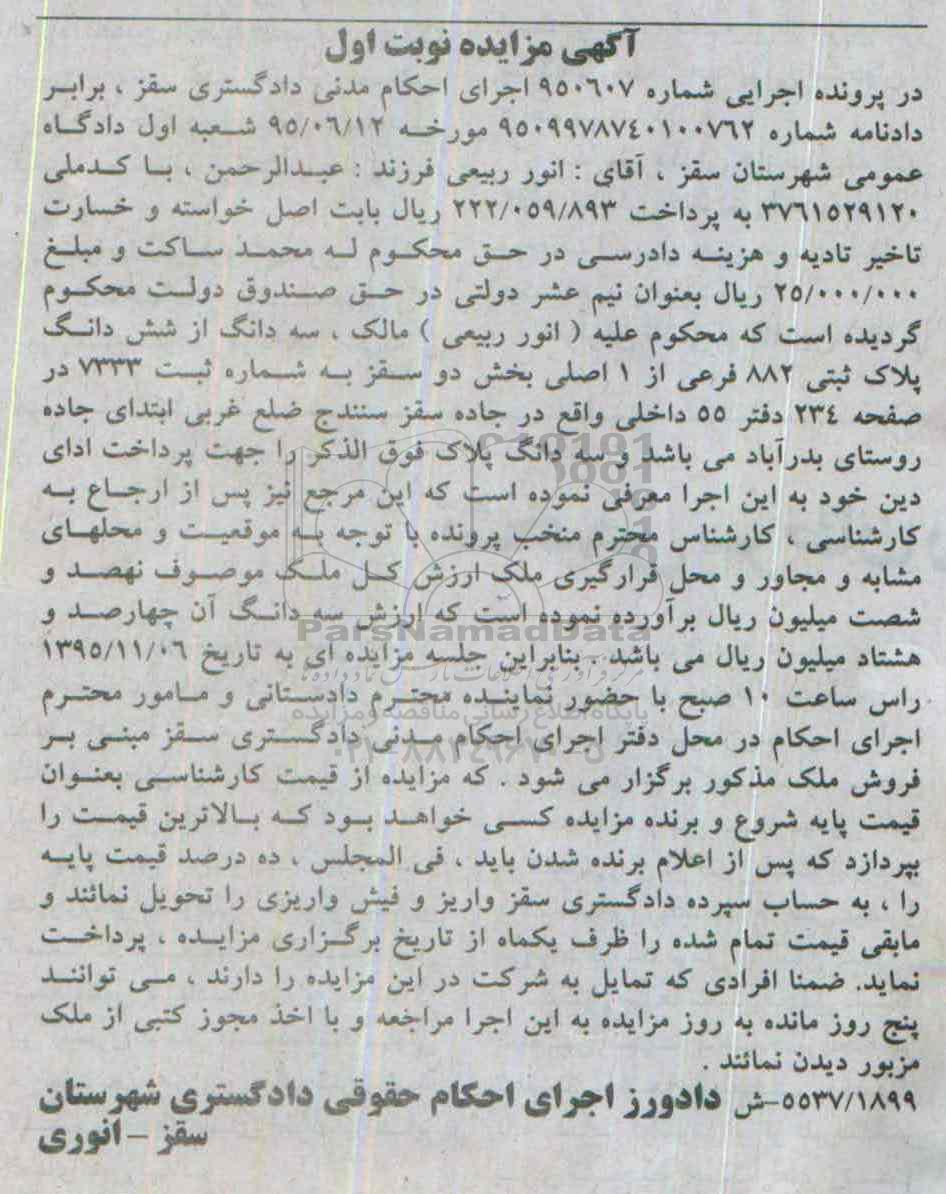 آگهی مزایده نوبت اول
در پرونده اجرایی شماره ۹۵۰۶۰۷ اجرای احکام مدنی دادگستری سقز ، برابر
دادنامه شماره ۹۵۰۹۹۷۸۷٤۰۱۰۰۷٦۲ مورخه ۹۵/۰٦/۱۲ شعبه اول دادگاه
عمومی شهرستان سقز ، آقای : انور ربیعی فرزند : عبدالرحمن ، با کدملی
۳۷٦۱۵۲۹۱۲۰ به پرداخت ۲۲۲/۰۵۹/۸۹۳ ریال بابت اصل خواسته و خسارت
تاخیر تادیه و هزینه دادرسی در حق محکوم له محمد ساکت و مبلغ
۲۵/۰۰۰/۰۰۰ ریال بعنوان نیم عشر دولتی در حق صندوق دولت محکوم
گردیده است که محکوم علیه ( انور ربیعی ) مالک ، سه دانگ از شش دانگ
پلاک ثبتی ۸۸۲ فرعی از ۱ اصلی بخش دو سقز به شماره ثبت ۷۳۳۳ در
صفحه ۲۳٤ دفتر ۵۵ داخلی واقع در جاده سقز سنندج ضلع غربی ابتدای جاده
روستای بدرآباد می باشد و سه دانگ پلاک فوق الذکر را جهت پرداخت ادای
دین خود به این اجرا معرفی نموده است که این مرجع نیز پس از ارجاع به
کارشناسی ، کارشناس محترم منخب پرونده با توجه به موقعیت و محلهای
مشابه و مجاور و محل قرارگیری ملک ارزش کل ملک موصوف نهصد و
شصت میلیون ریال برآورده نموده است که ارزش سه دانگ آن چهارصد و
ParsNamadData
هشتاد میلیون ریال می باشد . بنابراین جلسه مزایده ای به تاریخ ۱۳۹۵/۱۱/۰٦
راس ساعت ۱۰ صبح با حضور نماینده محترم دادستانی و مامور محترم
پایگاه اطلاع رسانی مناقصه و مزایده
اجرای احکام در محل دفتر اجرای احکام مدنی دادگستری سقز مبنی بر
فروش ملک مذکور برگزار می شود . که مزایده از قیمت کارشناسی بعنوان
قیمت پایه شروع و برنده مزایده کسی خواهد بود که بالاترین قیمت را
بپردازد که پس از اعلام برنده شدن باید ، فی المجلس ، ده درصد قیمت پایه
را ، به حساب سپرده دادگستری سقز واریز و فیش واریزی را تحویل نمائند و
مابقی قیمت تمام شده را ظرف یکماه از تاریخ برگزاری مزایده ، پرداخت
نماید. ضمنا افرادی که تمایل به شرکت در این مزایده را دارند ، می توانند
پنج روز مانده به روز مزایده به این اجرا مراجعه و با اخذ مجوز کتبی از ملک
مزبور دیدن نمائند .
۵۵۳۷/۱۸۹۹-ش دادورز اجرای احکام حقوقی دادگستری شهرستان
سقز – انوری